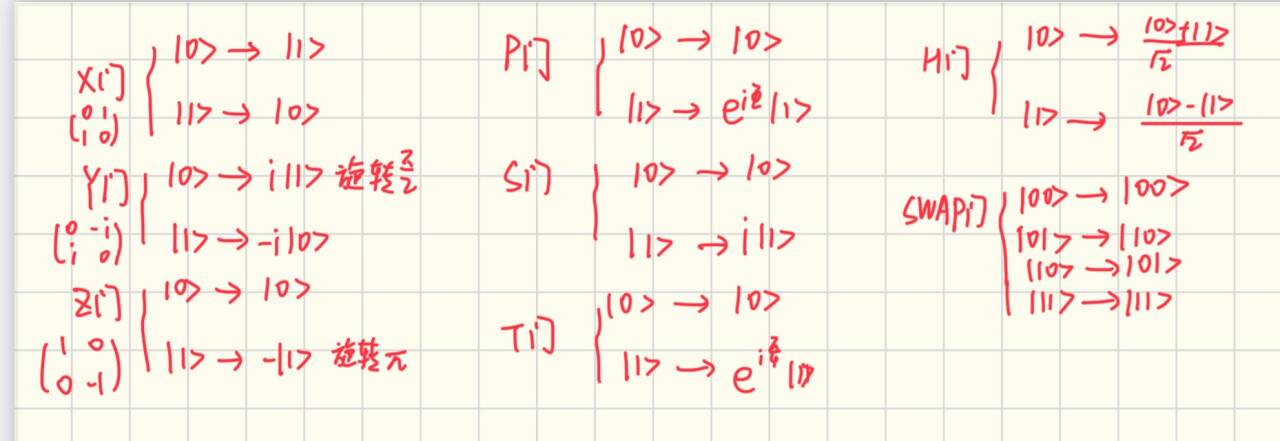 X门 |0> → |1>
(0 1
1 0) |1> → |0>
Y门 |0> → i|1> 旋转π/2
(0 -i
i 0) |1> → -i|0>
Z门 |0> → |0>
(1 0
0 -1) |1> → -|1> 旋转π
P门 |0> → |0>
|1> → e^i |1>
S门 |0> → |0>
|1> → i|1>
T门 |0> → |0>
|1> → e^(iπ/4) |1>
H门 |0> → (|0>+|1>)/√2
|1> → (|0>-|1>)/√2
SWAP门 |00> → |00>
|01> → |10>
|10> → |01>
|11> → |11>